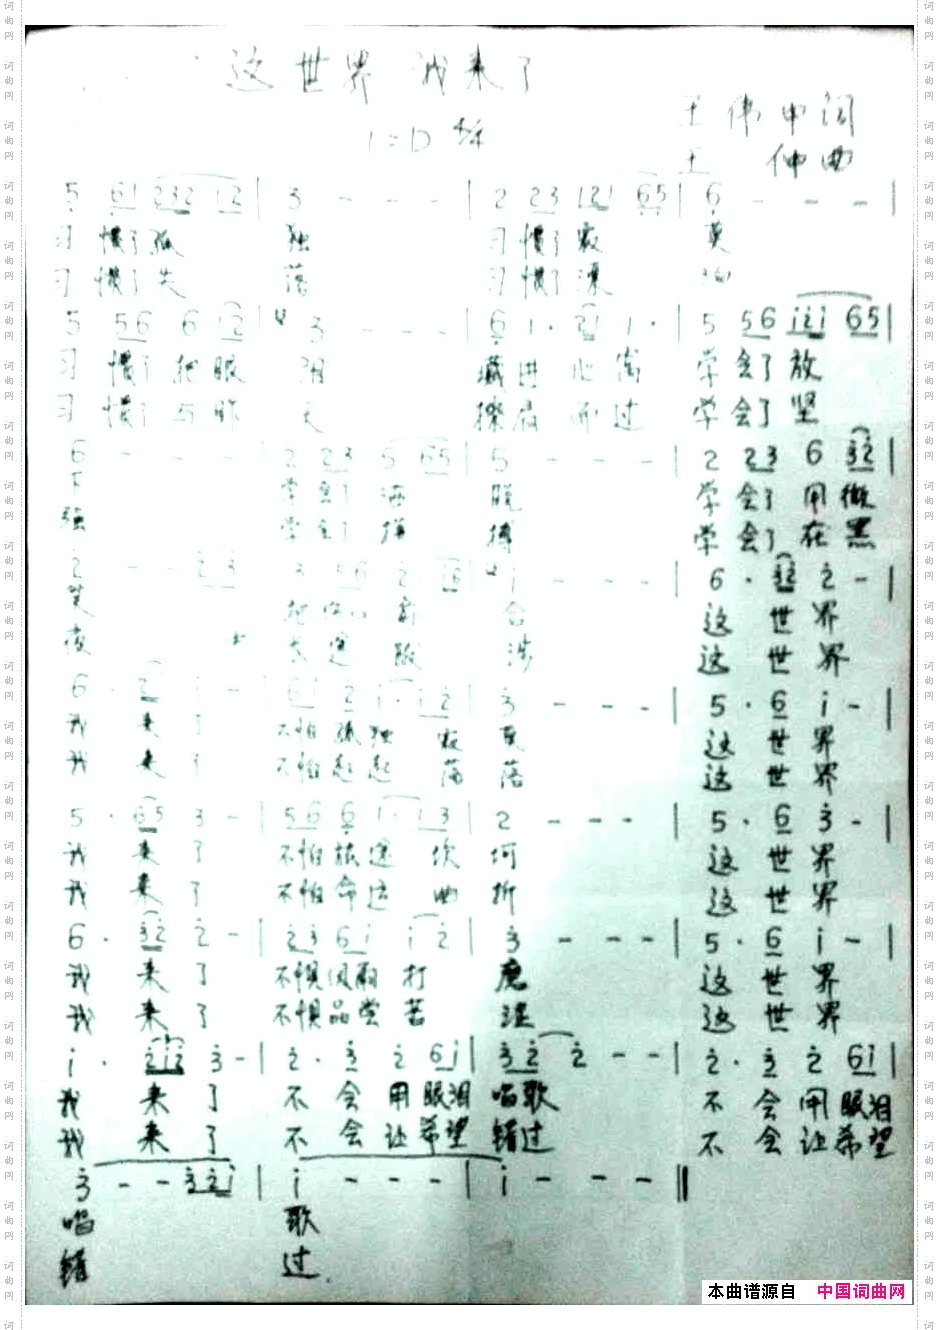 这世界 我来了
1=D 4/4
王伟中词
王 仲曲
5 61 232 12 | 3 - - - | 2 23 121 65 | 6 - - - |
习惯了孤 独 习惯了寂 莫
习惯了失 落 习惯了漂 泊
5 56 6 12 3 - - - | 6 1· 21 1· 5 56 121 65 |
习惯了把眼 泪 藏进心窝 学会了放
习惯了与昨 天 擦肩而过 学会了坚
6 - - - | 2 23 5 65 | 5 - - - | 2 23 6 32 |
下 学会了洒 脱 学会了用微
强 学会了 搏 学会了在黑
2 - - 23 3 56 2· 16 1 - - - | 6· 32 2 - |
笑 把 合 这世界
夜 去 涉 这世界
6· 2 1 - 61 2 1· 12 3 - - - | 5· 6 1 - |
我来了 不怕孤独 寂莫 这世界
我来了 不怕起起 落落 这世界
5· 65 3 - | 56 6 1· 13 2 - - - | 5· 6 3 - |
我来了 不怕旅途 坎坷 这世界
我来了 不怕命运 曲折 这世界
6· 32 2 - | 23 61 1 2 | 3 - - - | 5· 6 1 - |
我来了 不惧风雨打 磨 这世界
我来了 不惧品尝苦 涩 这世界
1· 212 3 - | 2· 3 2 61 | 32 2 - - | 2· 3 2 61 |
我来了 不会用眼泪 唱歌 不会用眼泪
我来了 不会让希望 错过 不会让希望
3 - - 321 | 1 - - - | 1 - - - ‖
唱 歌
错 过.
本曲谱源自 中国词曲网
词曲网